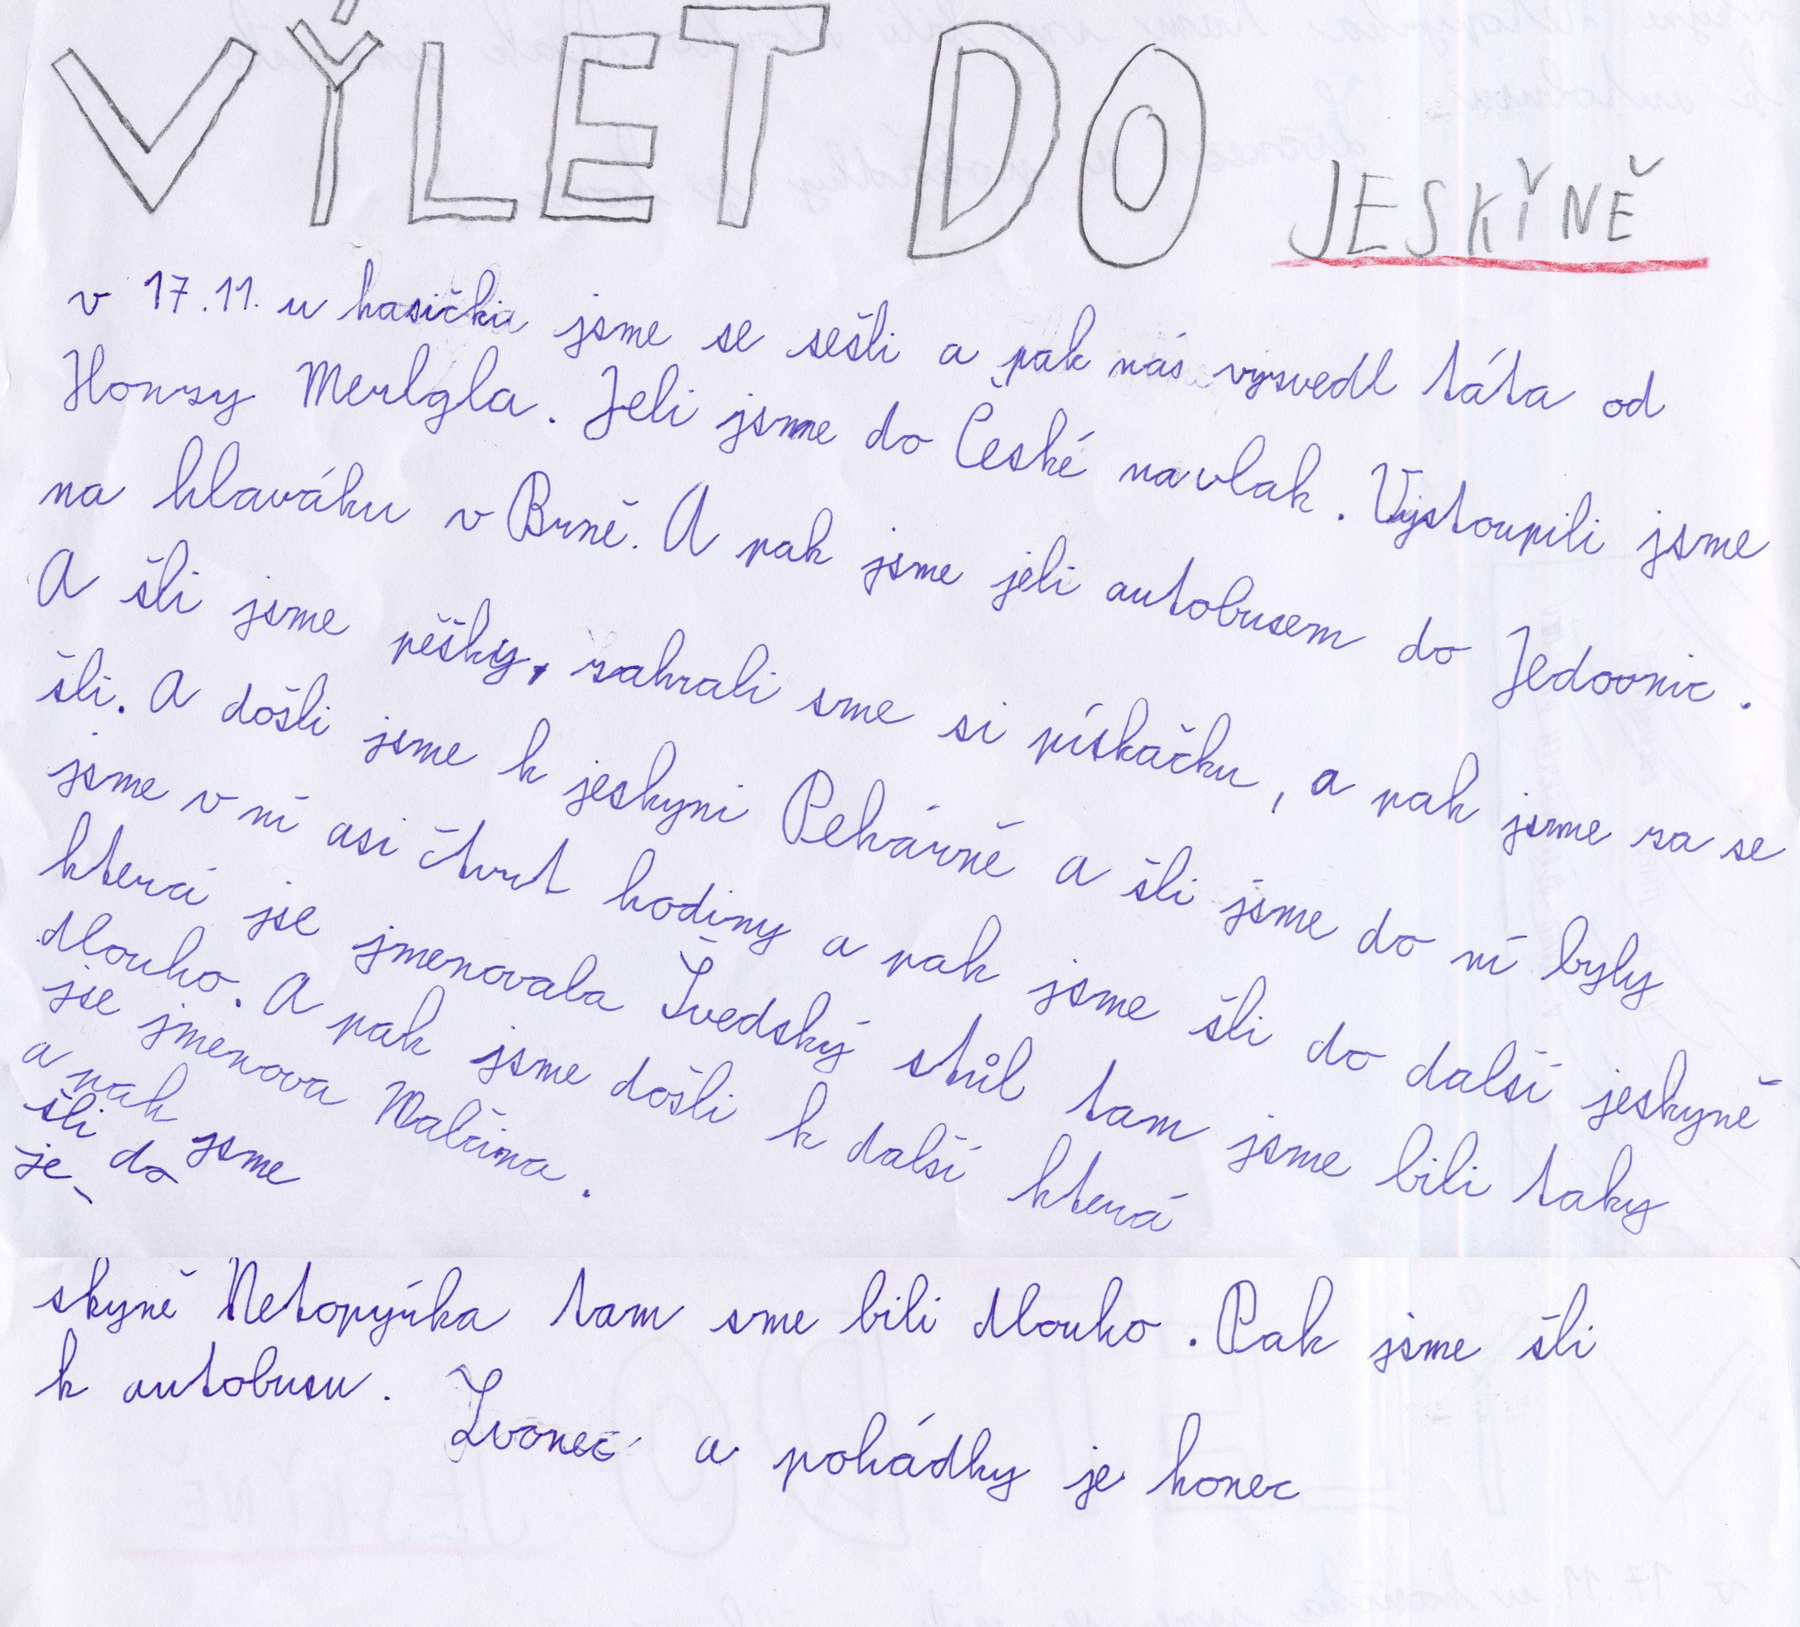 VÝLET DO JESKYNĚ
v 17.11. u hasička jsme se sešli a pak nás vyzvedl táta od
Honzy Merlgla. Jeli jsme do České na vlak. Vystoupili jsme
na hlaváku v Brně. A pak jsme jeli autobusem do Jedovnic.
A šli jsme pěšky, zahrali sme si pískačku, a pak jsme za se
šli. A došli jsme k jeskyni Pekárně a šli jsme do ní byly
jsme v ní asi čtvrt hodiny a pak jsme šli do další jeskyně
která jse jmenovala Švedský stůl tam jsme bili taky
dlouho. A pak jsme došli k další která
jse jmenova Malčina.
a pak jsme
šli do
je-
skyně Netopýrka tam sme bili dlouho. Pak jsme šli
k autobusu.
Zvonec a pohádky je konec